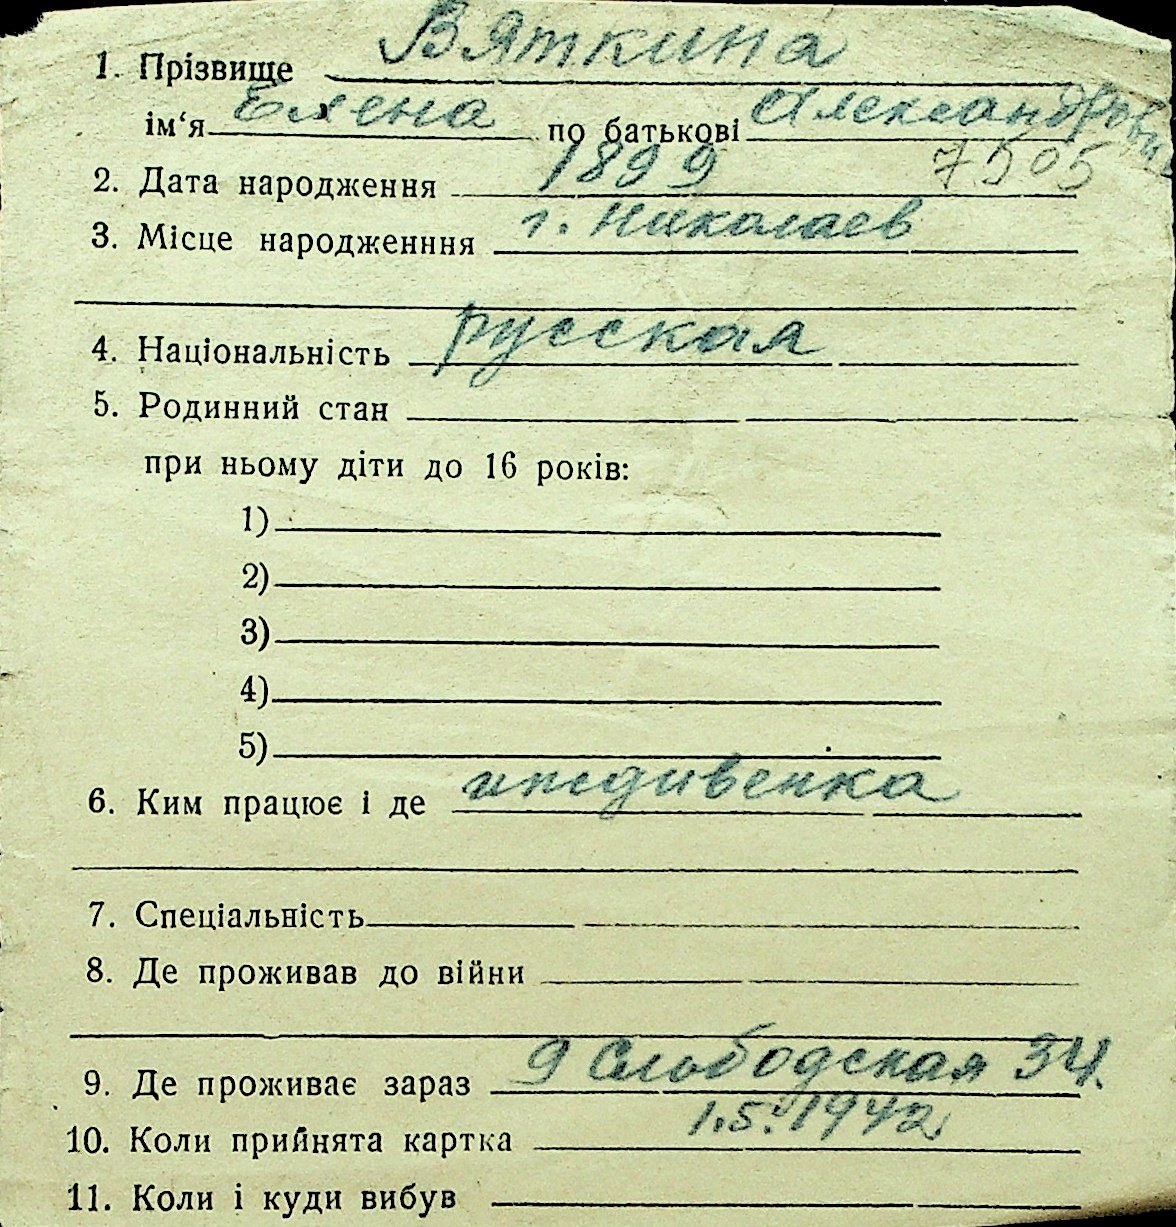 1. Прізвище Вяткина
ім‘я Елена по батькові Александровна
2. Дата народження 1899 7505
3. Місце народженння г. Николаев
4. Національність русская
5. Родинний стан
при ньому діти до 16 років:
1)
2)
3)
4)
5)
6. Ким працює і де иждивенка
7. Спеціальність
8. Де проживав до війни
9. Де проживає зараз 9 Слободская 34.
10. Коли прийнята картка 1.5.1942
11. Коли і куди вибув